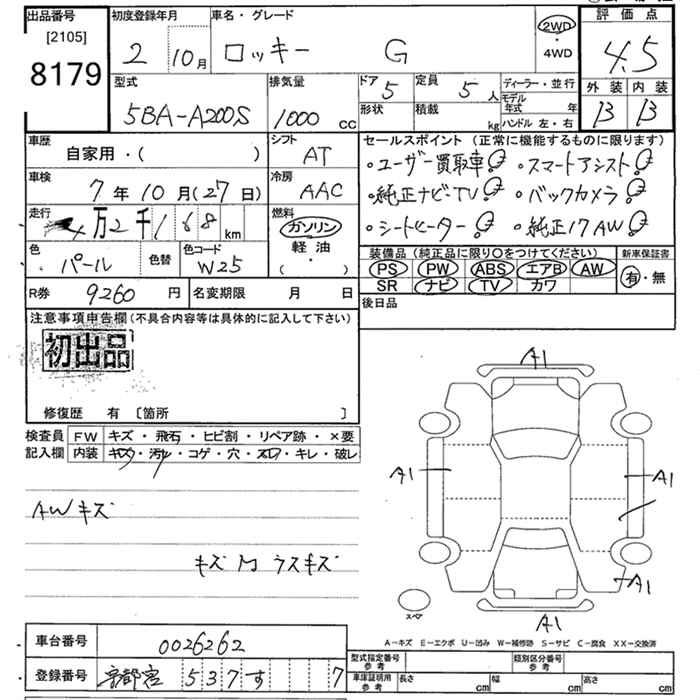 出品番号 初度登録年月 車名・グレード 評価点
[2105] 8179 2 10月 ロッキー G 2WD・4WD 4.5
型式 排気量 ドア 5 定員 5人 ディーラー・並行 外装 内装
5BA-A200S 1000 cc 形状 積載 kg モデル年式 年 ハンドル 左・右 B B
車歴 シフト セールスポイント(正常に機能するものに限ります)
自家用・( ) AT ・ユーザー買取車 ・スマートアシスト
車検 冷房 ・純正ナビTV ・バックカメラ
7年10月(27日) AAC ・シートヒーター ・純正17AW
走行 燃料
4万2千168km ガソリン
色 色替 色コード 軽油
パール W25 ・( )
装備品(純正品に限り○をつけてください) 新車保証書
PS PW ABS エアB AW 有・無
SR ナビ TV カワ
R券 9260円 名変期限 月 日 後日品
注意事項申告欄(不具合内容等は具体的に記入して下さい)
初出品
修復歴 有 [箇所 ]
検査員 FW キズ・飛石・ヒビ割・リペア跡・×要
記入欄 内装 キズ・汚・コゲ・穴・スレ・キレ・破レ
A1
A1 A1
AWキズ
A1
スペア A1
A-キズ E-エクボ U-凹み W-補修跡 S-サビ C-腐食 XX-交換済
車台番号 0026262
登録番号 宇都宮 537 す 7
型式指定番号 参考 類別区分番号 参考
車庫証明用 参考 長さ cm 幅 cm 高さ cm